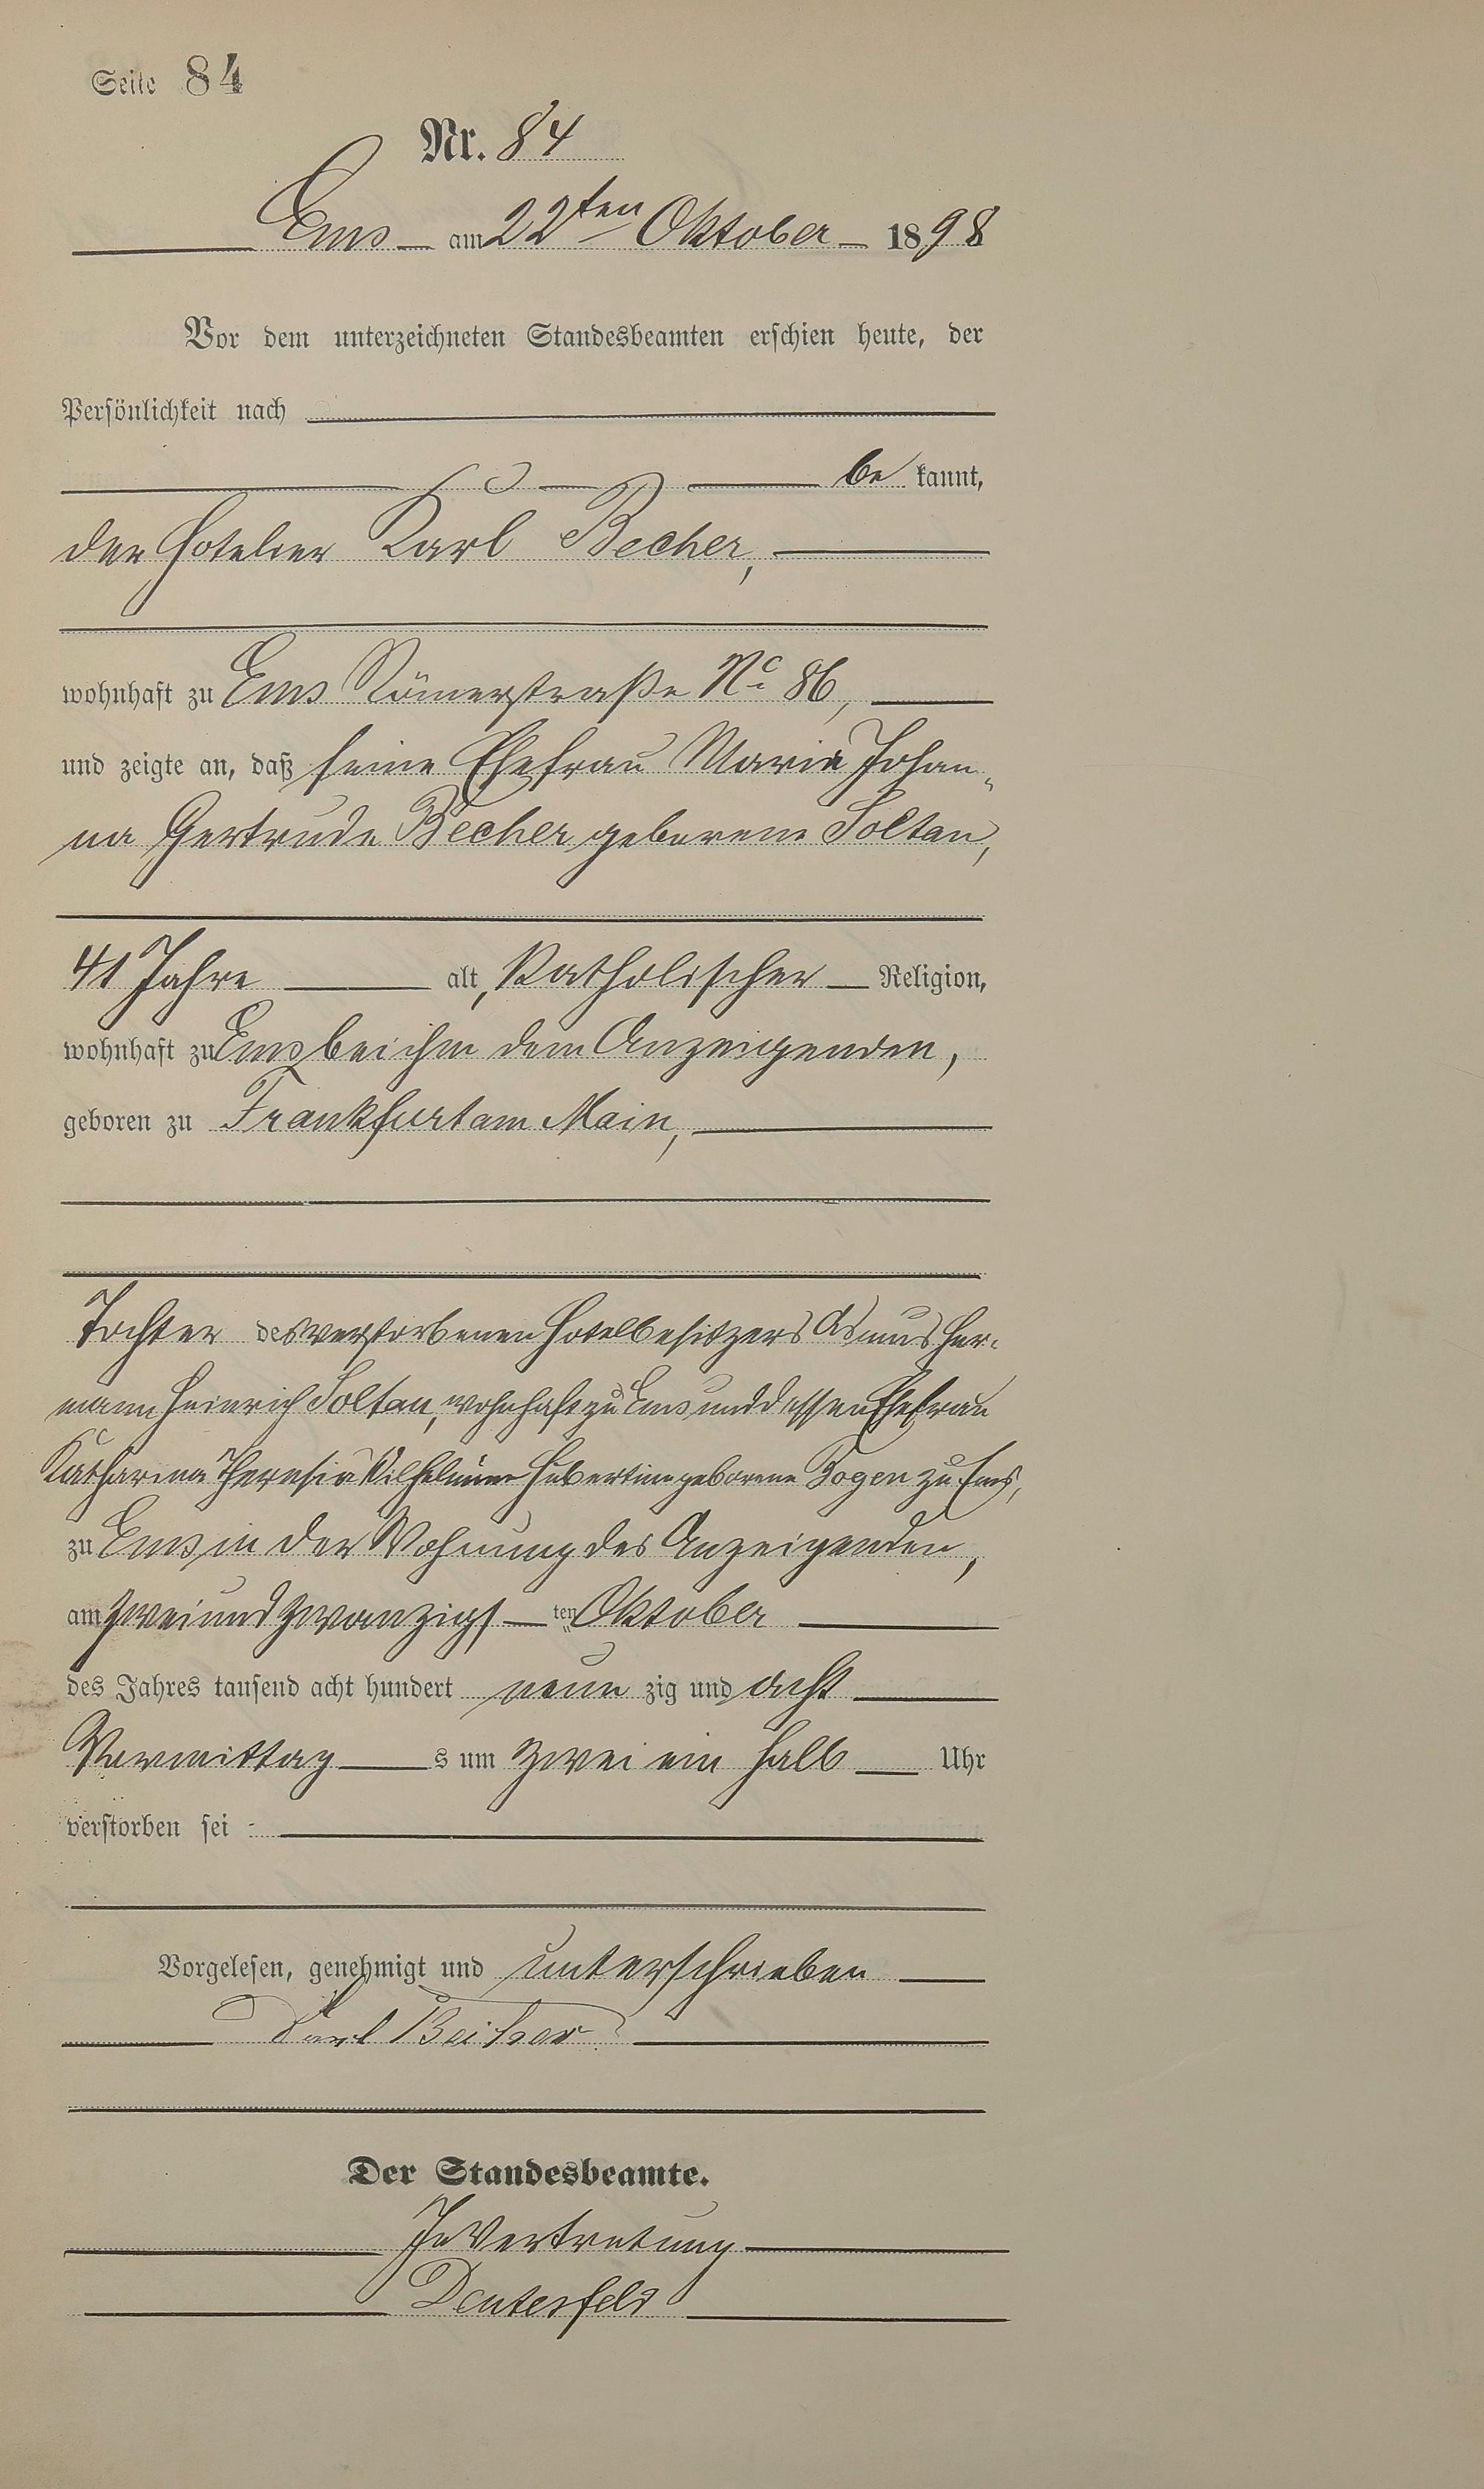 Seite 84
Nr. 84
Ems am 22ten Oktober 1898
Vor dem unterzeichneten Standesbeamten erschien heute, der
Persönlichkeit nach
be kannt,
der Hotelier Karl Becher,
wohnhaft zu Ems Römerstraße No 86,
und zeigte an, daß seine Ehefrau Maria Johan„
na Gertrude Becher geborene Soltan,
41 Jahre alt, katholischer Religion,
wohnhaft zu Ems bei ihm dem Anzeigenden,
geboren zu Frankfurt am Main,
Tochter des verstorbenen Hotelbesitzers Asmus Her-
mann Heinrich Soltan, wohnhaft zu Ems und dessen Ehefrau
Katharina Theresia Wilhelmine Hubertine geborene Bogen zu Ems,
zu Ems in der Wohnung des Anzeigenden,
am zweiundzwanzigs ten Oktober
des Jahres tausend acht hundert neun zig und acht
Vormittag s um zwei ein halb Uhr
verstorben sei
Vorgelesen, genehmigt und unterschrieben
Karl Becher
Der Standesbeamte.
In Vertretung